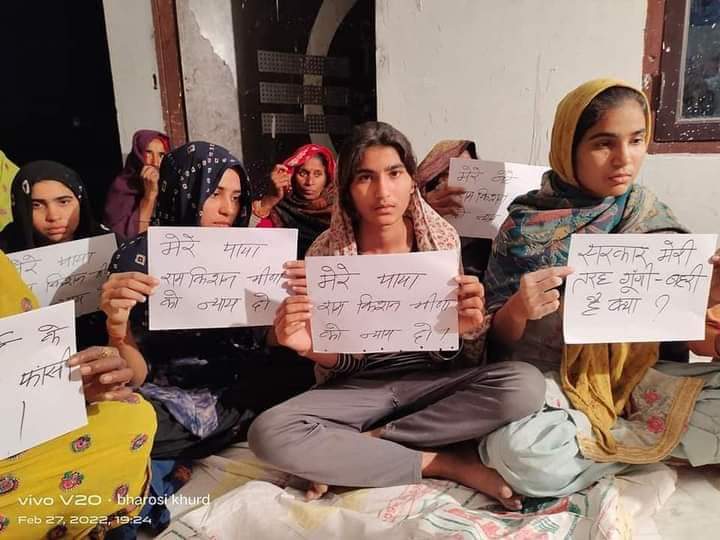 मेरे पापा
राम किशन
को न्याय दो
मेरे पापा
राम किशन मीणा
को न्याय दो
मेरे पापा
राम किशन मीणा
को न्याय दो।
राम किशन
को न्याय
सरकार मेरी
तरह गूंगी-बहरी
है क्या ?
के
फांसी
।
vivo V20 · bharosi khurd
Feb 27, 2022, 19:24